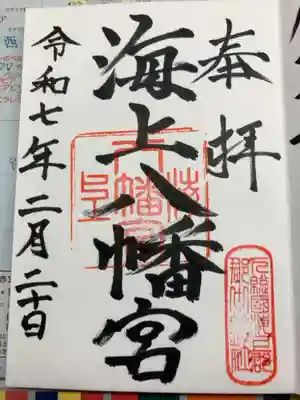 奉拝
海上八幡宮
令和七年二月二十日